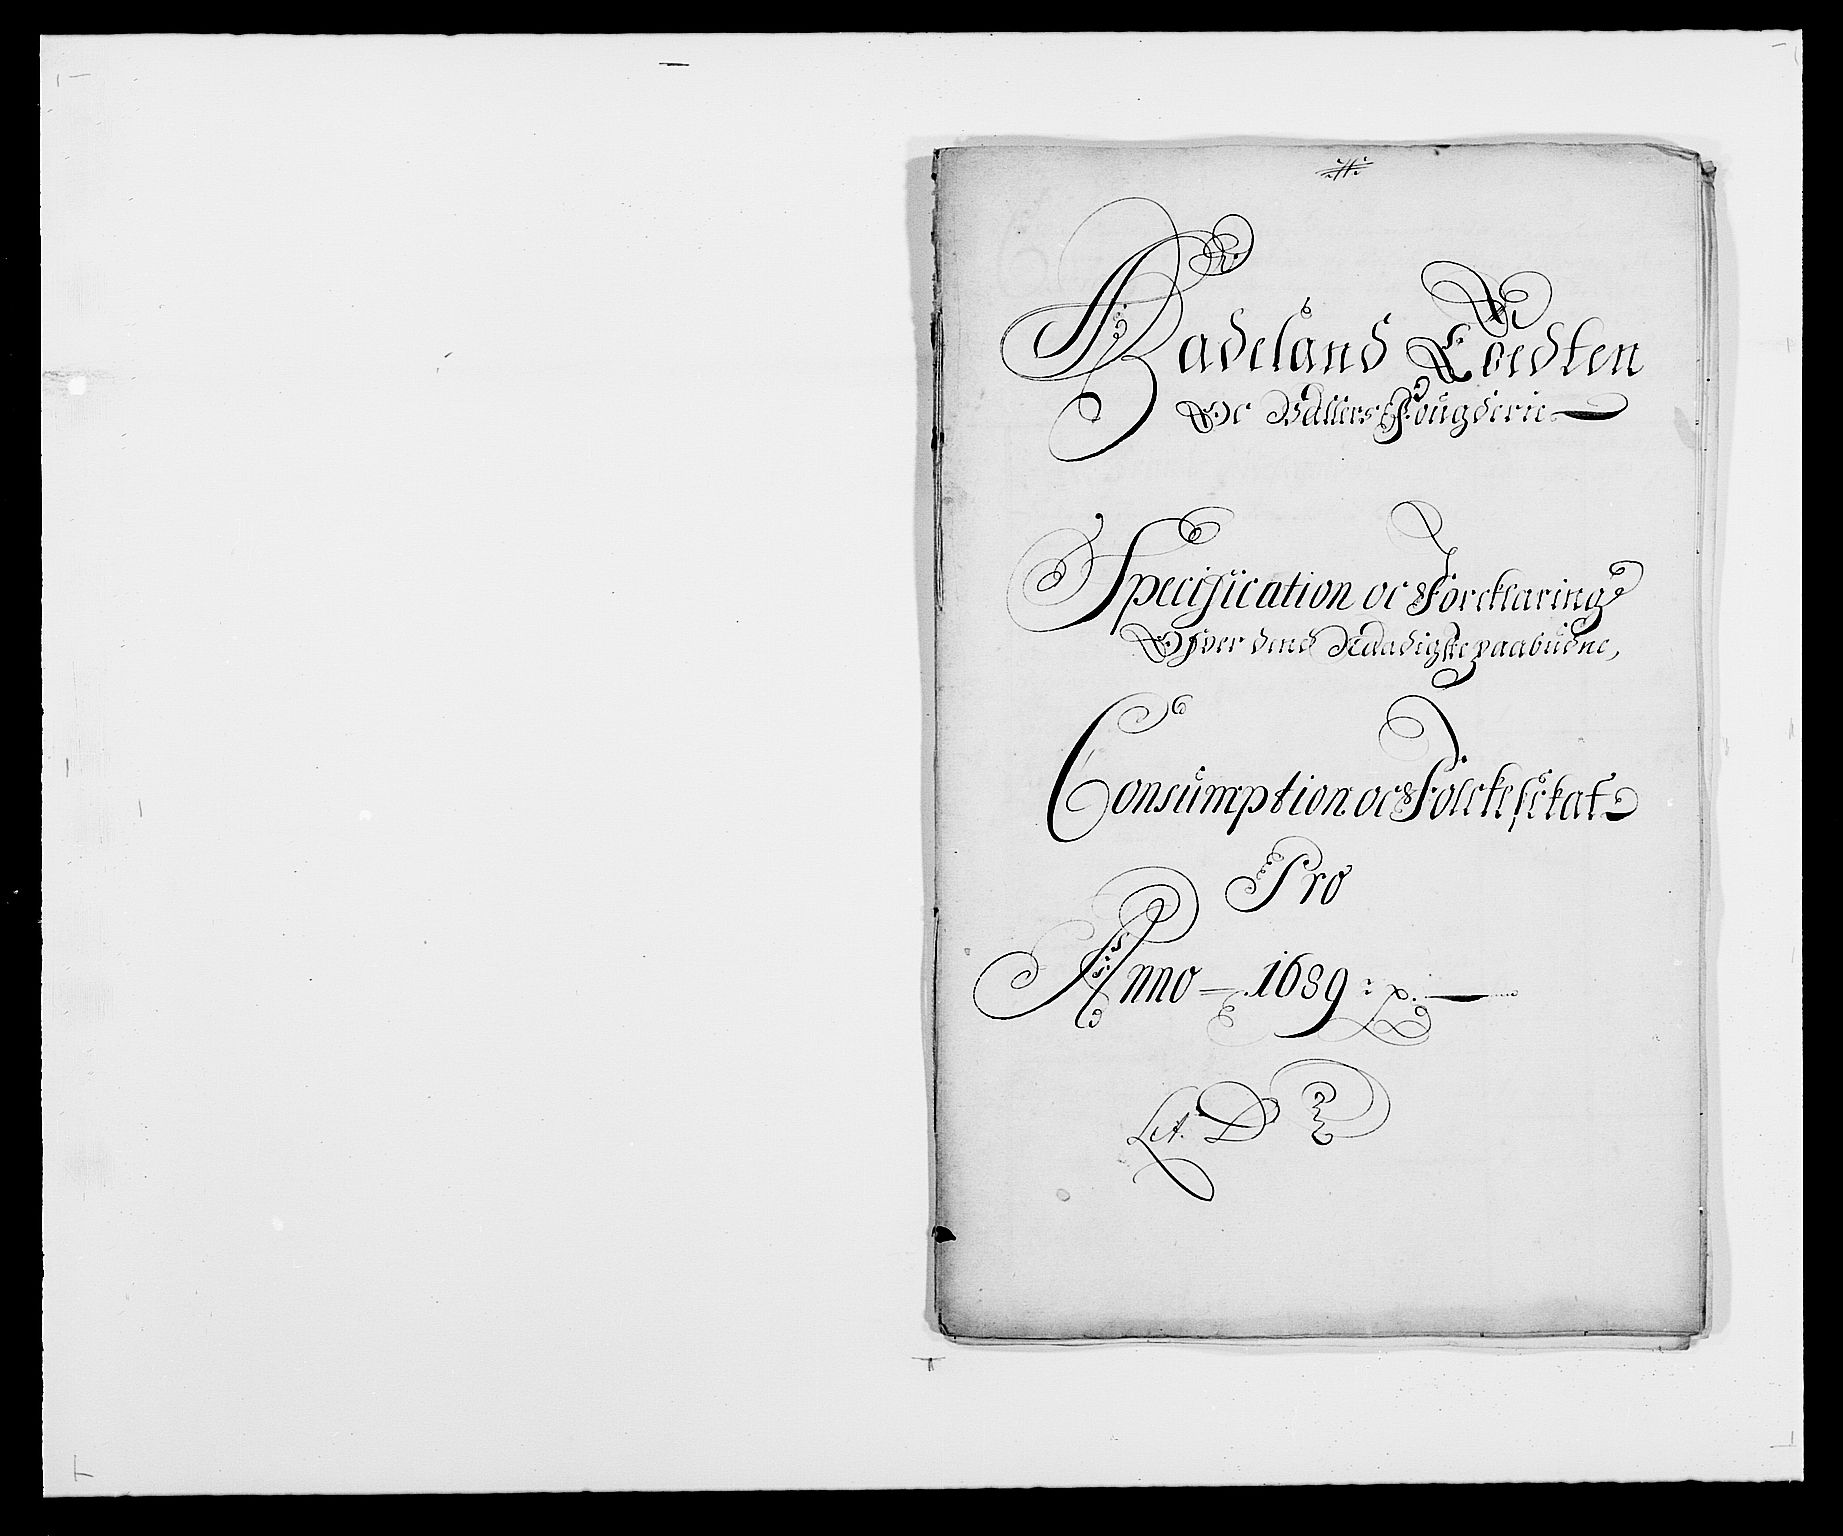 Hadeland Toedten
Oc Walders Fougderie
Specification oc Forcklaring
Ofver dend Naadigste paabudne,
Consumption oc Folckeschat
Pro
Anno 1689:
Lit. D